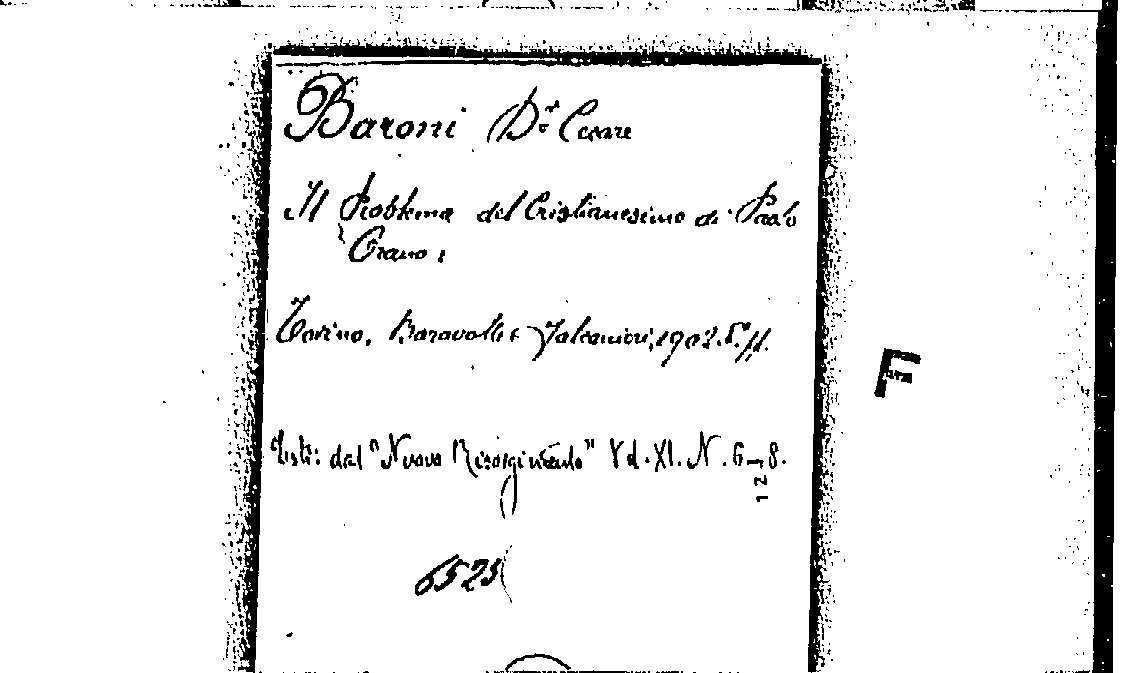 Baroni Dr. Cesare
Il Problema del Cristianesimo di Paolo
Orano.
Torino, Baravalle e Falconieri, 1902. 8°
Estr: dal "Nuovo Risorgimento" Vol. XI. N. 6-8.
12
6523
F